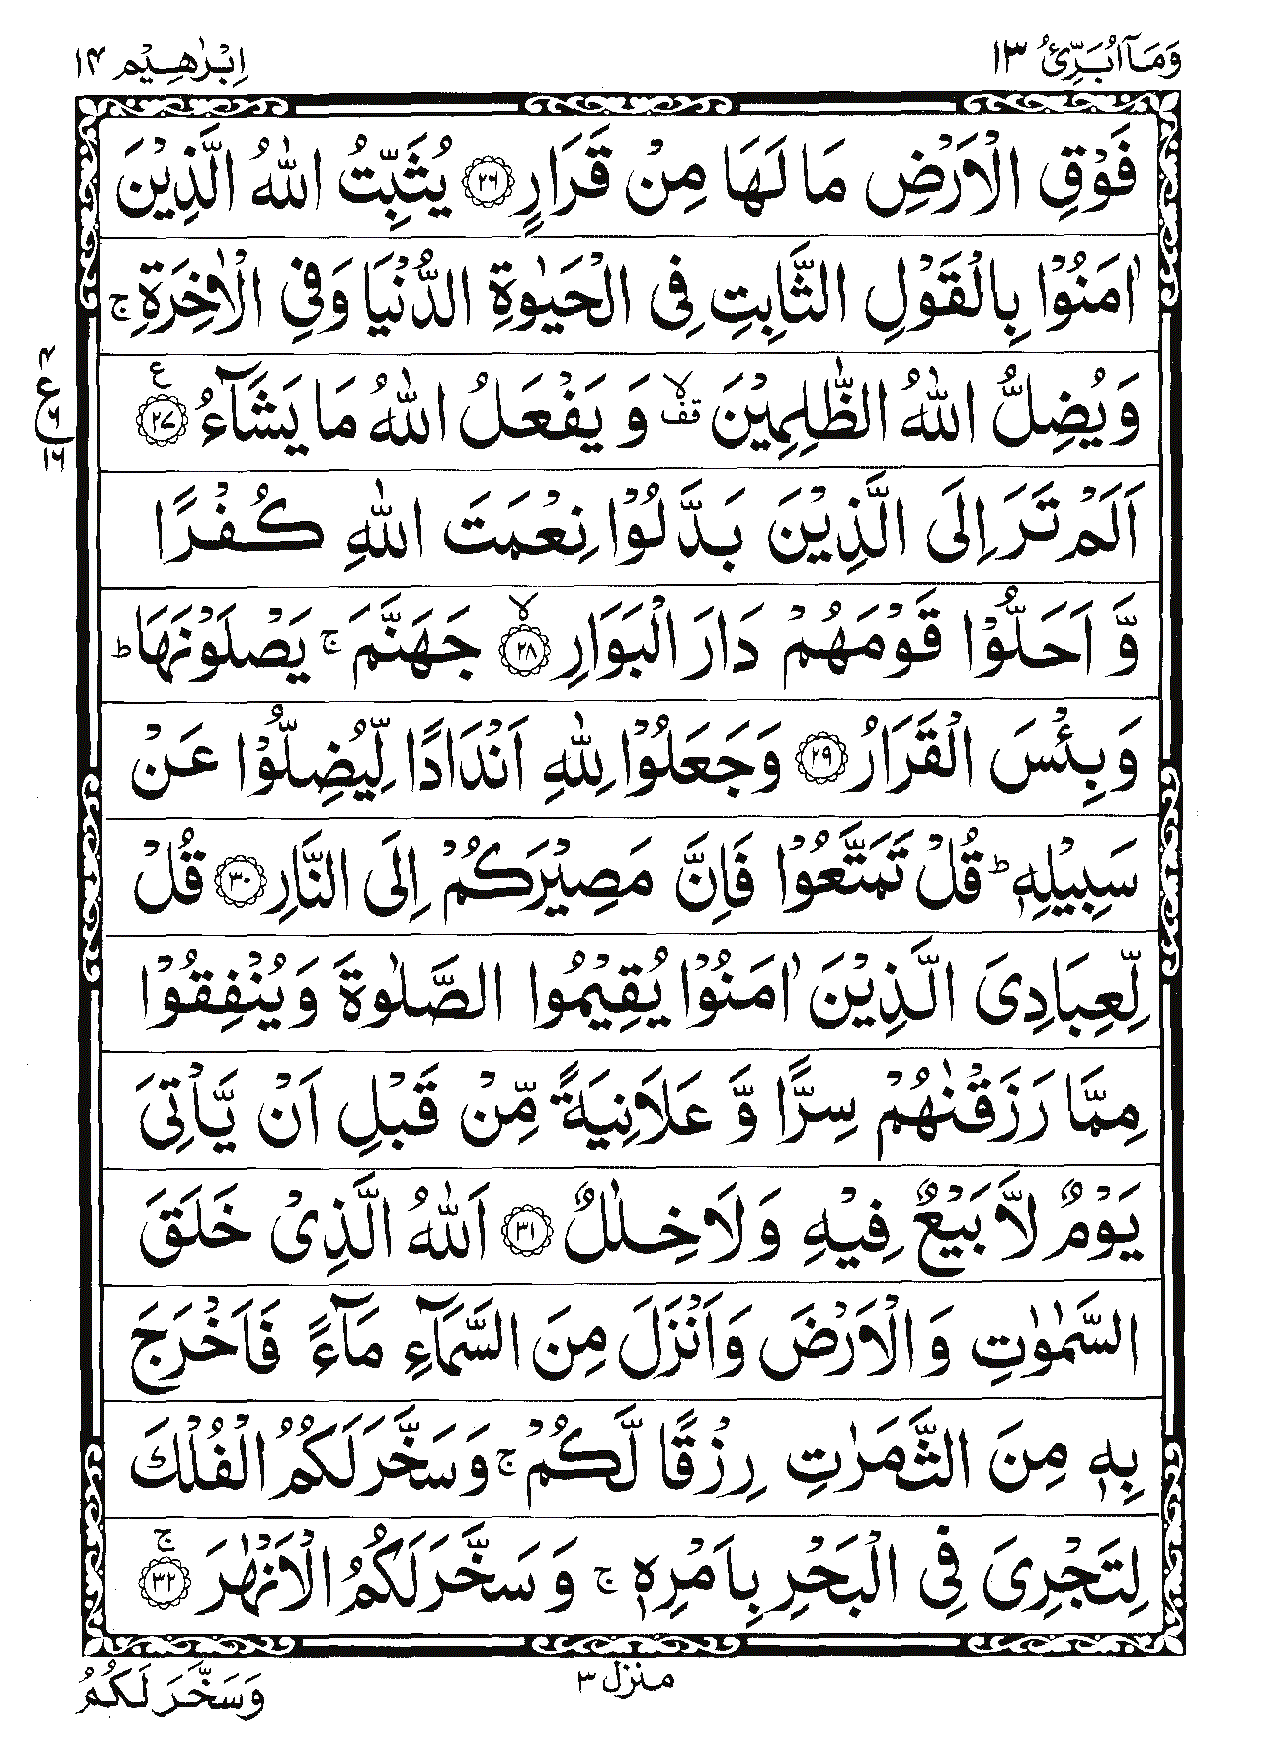 وَمَاۤ اُبَرِّئُ ١٣
اِبْرٰهِيْم ١٤
فَوْقِ الْاَرْضِ مَا لَهَا مِنْ قَرَارٍ ﴿۲۶﴾ يُثَبِّتُ اللّٰهُ الَّذِيْنَ
اٰمَنُوْا بِالْقَوْلِ الثَّابِتِ فِى الْحَيٰوةِ الدُّنْيَا وَفِى الْاٰخِرَةِ ۚ
وَيُضِلُّ اللّٰهُ الظّٰلِمِيْنَ ۙ قف وَ يَفْعَلُ اللّٰهُ مَا يَشَآءُ ﴿۲۷﴾ ع
٤
ع
٦
١٦
اَلَمْ تَرَ اِلَى الَّذِيْنَ بَدَّلُوْا نِعْمَتَ اللّٰهِ كُفْرًا
وَّ اَحَلُّوْا قَوْمَهُمْ دَارَ الْبَوَارِ ۙ ﴿۲۸﴾ جَهَنَّمَ ۚ يَصْلَوْنَهَا ؕ
وَبِئْسَ الْقَرَارُ ﴿۲۹﴾ وَجَعَلُوْا لِلّٰهِ اَنْدَادًا لِّيُضِلُّوْا عَنْ
سَبِيْلِهٖ ؕ قُلْ تَمَتَّعُوْا فَاِنَّ مَصِيْرَكُمْ اِلَى النَّارِ ﴿۳۰﴾ قُلْ
لِّعِبَادِىَ الَّذِيْنَ اٰمَنُوْا يُقِيْمُوا الصَّلٰوةَ وَيُنْفِقُوْا
مِمَّا رَزَقْنٰهُمْ سِرًّا وَّ عَلَانِيَةً مِّنْ قَبْلِ اَنْ يَّاْتِىَ
يَوْمٌ لَّا بَيْعٌ فِيْهِ وَلَا خِلٰلٌ ﴿۳۱﴾ اَللّٰهُ الَّذِىْ خَلَقَ
السَّمٰوٰتِ وَ الْاَرْضَ وَاَنْزَلَ مِنَ السَّمَآءِ مَآءً فَاَخْرَجَ
بِهٖ مِنَ الثَّمَرٰتِ رِزْقًا لَّكُمْ ۚ وَسَخَّرَ لَكُمُ الْفُلْكَ
لِتَجْرِىَ فِى الْبَحْرِ بِاَمْرِهٖ ۚ وَسَخَّرَ لَكُمُ الْاَنْهٰرَ ۚ ﴿۳۲﴾
منزل ٣
وَسَخَّرَ لَكُمُ